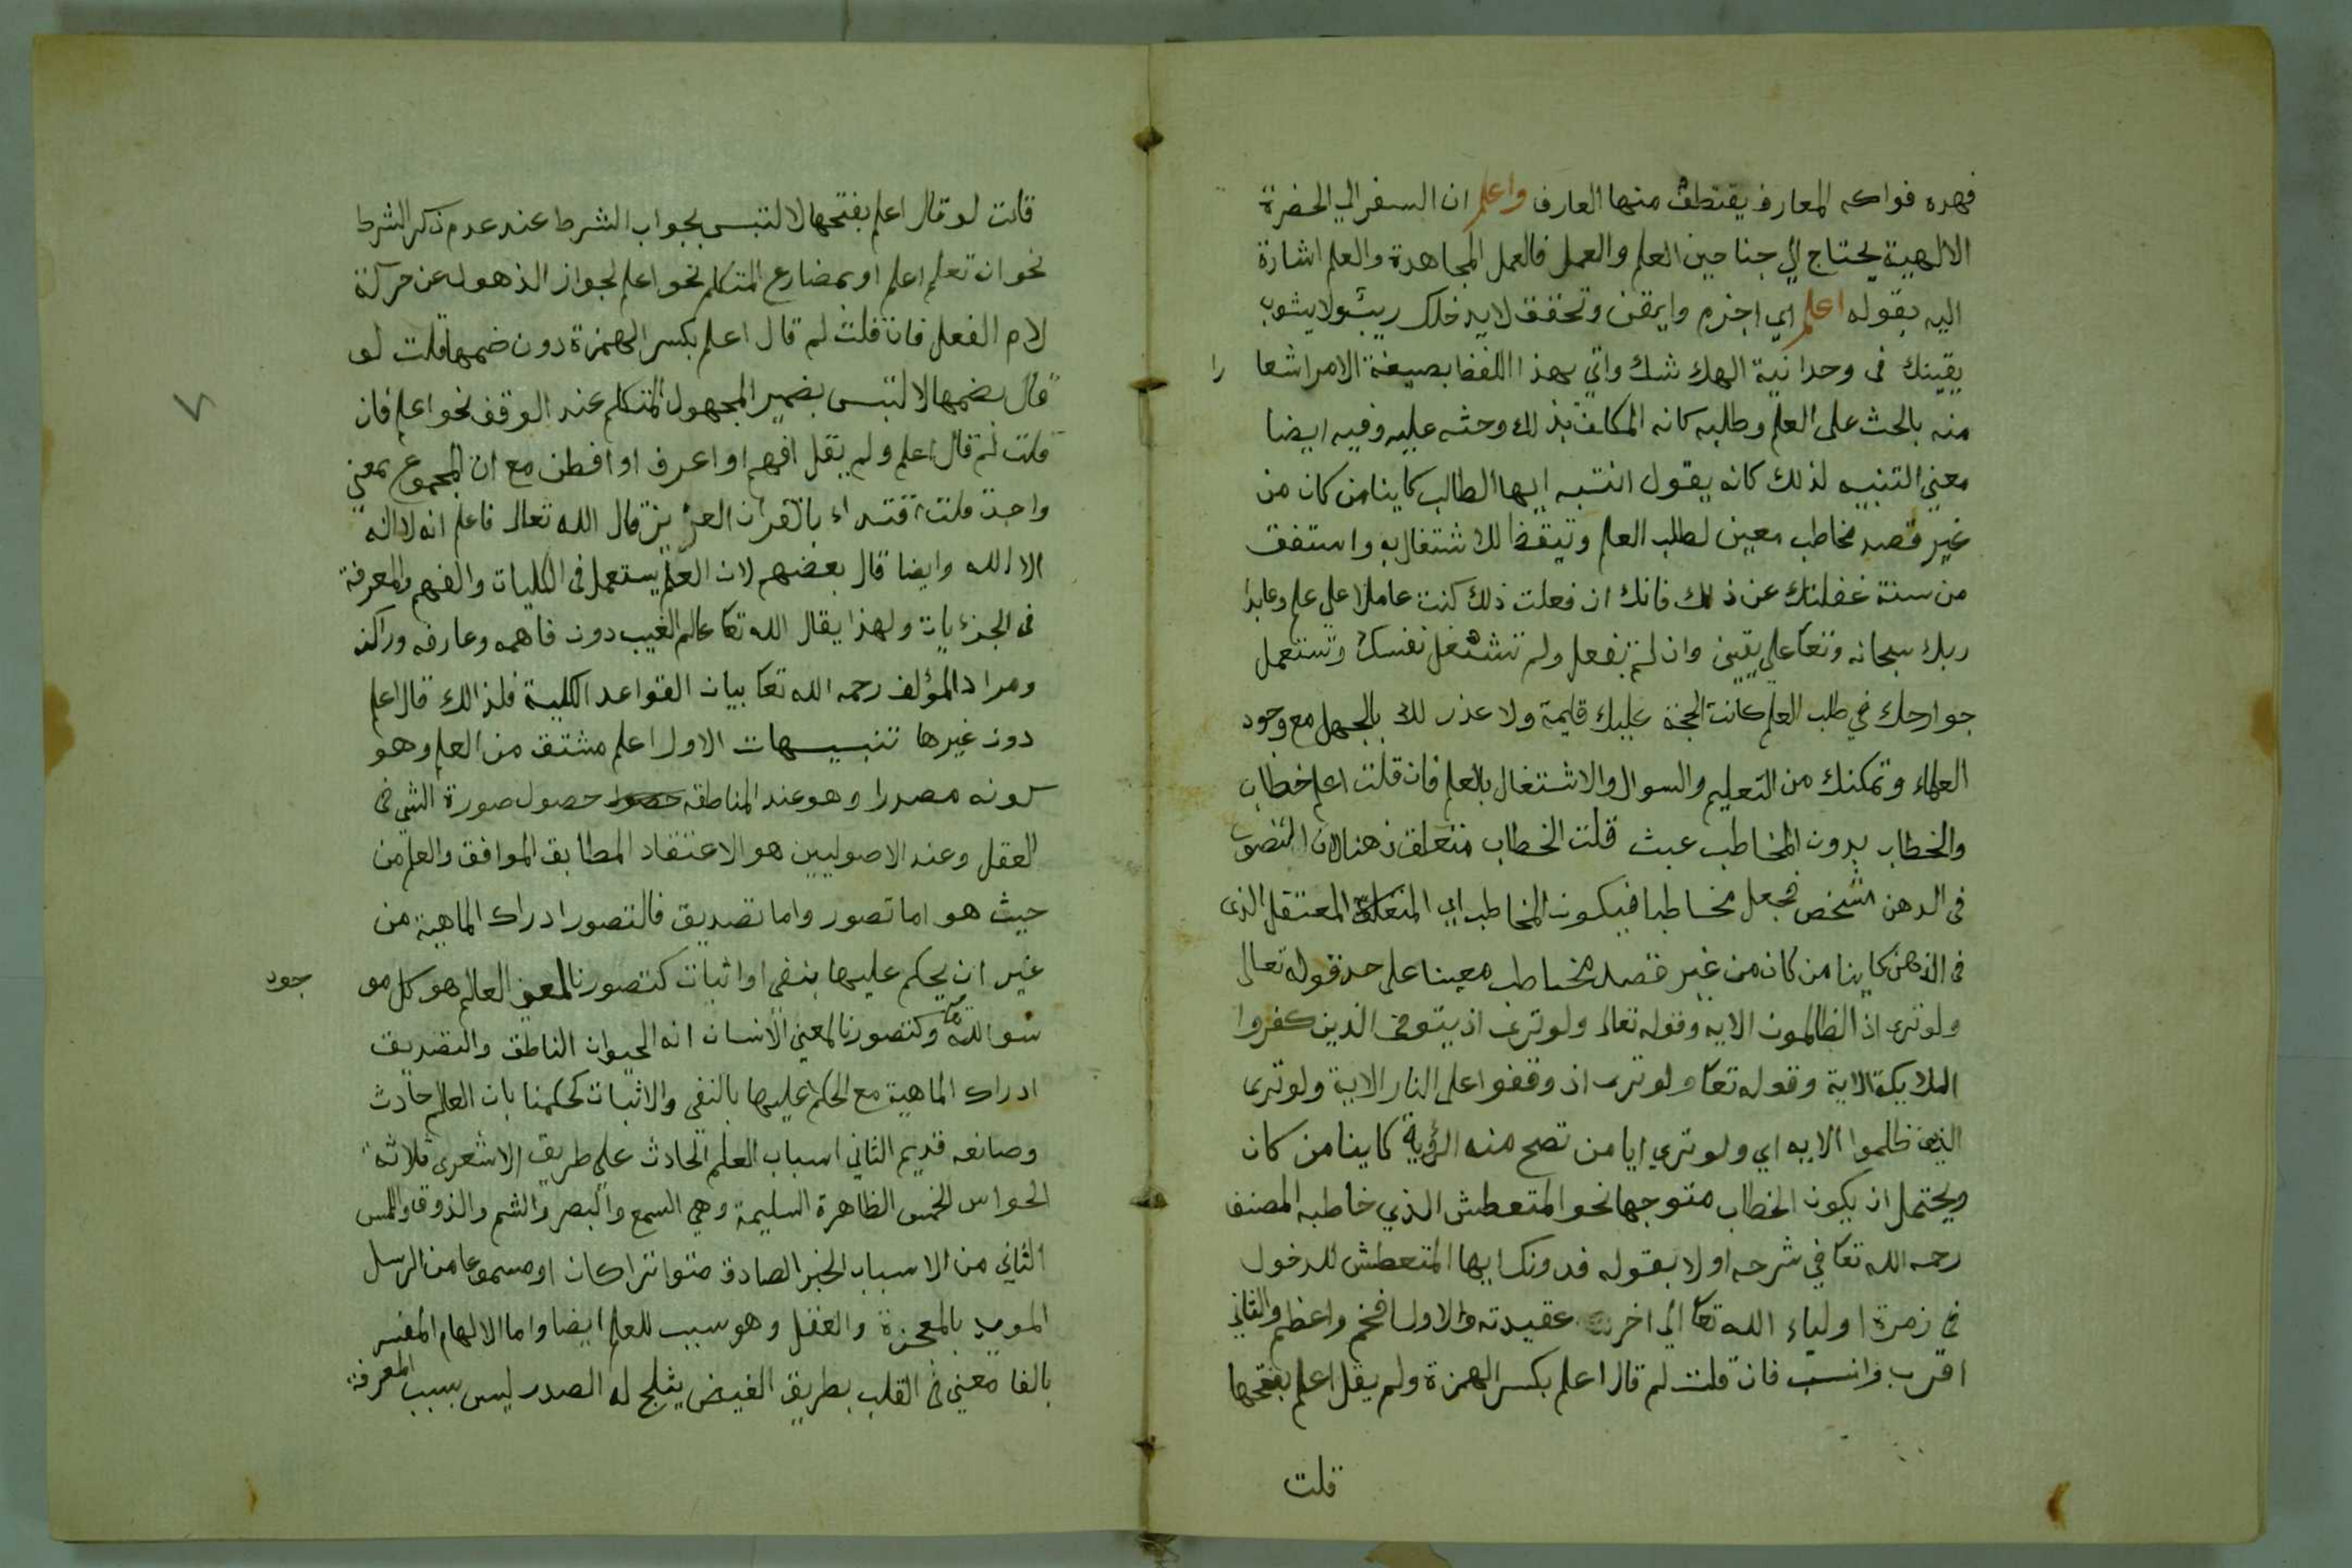 فهده فواكه المعارف يقتطف منها العارف واعلم ان السفر الي الحضرة
الالهية يحتاج الي جناحين العلم والعمل فالعمل المجاهدة والعلم اشارة
اليه بقوله اعلم اي اجزم وايقن وتحقق لا يدخلك ريب ولا يشوب
يقينك في وحدانية الهك شك واتي بهذا اللفظ بصيغة الامر اشعا را
منه بالحث على العلم وطلبه كانه المكلف بذلك وحثه عليه وفيه ايضا
معني التنبيه لذلك كانه يقول انتبه ايها الطالب كاينا من كان من
غير قصد مخاطب معين لطلب العلم وتيقظ للاشتغال به واستفق
من سنة غفلتك عن ذلك فانك ان فعلت ذلك كنت عاملا علي علم وعابدا
ربك سبحانه وتعا علي يقين وان لم تفعل ولم تشتغل نفسك وتستعمل
جوارحك في طلب العلم كانت الحجة عليك قايمة ولا عذر لك بالجهل مع وجود
العلماء وتمكنك من التعليم والسوال والاشتغال بالعلم فان قلت اعلم خطاب
والخطاب بدون المخاطب عبث قلت الخطاب متعلق ذهنا لان المتصور
في الدهن شخص فجعل مخاطبا فيكون المخاطب اي المتعلق المعتقل الذى
في الذهن كاينا من كان من غير قصد مخاطب معينا على حد قوله تعالى
ولو ترى اذ الظالمون الايه وقوله تعالى ولو ترى اذ يتوفى الذين كفروا
الملايكة الاية وقوله تعا ولو ترى اذ وقفوا على النار الاية ولو ترى
الذين ظلموا الايه اي ولو تري ايا من تصح منه الرؤية كاينا من كان
ويحتمل ان يكون الخطاب متوجها نحو المتعطش الذي خاطبه المصنف
رحمه الله تعا في شرحه اولا بقوله فدونك ايها المتعطش للدخول
في زمرة اولياء الله تعا الي اخر عقيدته والاول افخم واعظم والثاني
اقرب وانسب فان قلت لم قال اعلم بكسر الهمزة ولم يقل اعلم بفتحها
قلت
قلت لو قال اعلم بفتحها لالتبس بجواب الشرط عند عدم ذكر الشرط
نحو ان تعلم اعلم او بمضارع المتكلم نحو اعلم لجواز الذهول عن حركة
لام الفعل فان قلت لم قال اعلم بكسر الهمزة دون ضمها قلت لو
قال بضمها لالتبس بضمير المجهول المتكلم عند الوقف نحو اعلم فان
قلت لم قال اعلم ولم يقل افهم او اعرف او افطن مع ان المجموع بمعني
واحد قلت اقتداء بالقران العزيز قال الله تعالى فاعلم انه لا اله
الا الله وايضا قال بعضهم لان العلم يستعمل في الكليات والفهم والمعرفة
في الجزئيات ولهذا يقال الله تعا عالم الغيب دون فاهمه وعارفه
ومراد المؤلف رحمه الله تعا بيان القواعد الكلية فلذالك قال اعلم
دون غيرها تنبيهات الاول اعلم مشتق من العلم وهو
كونه مصدرا وهو عند المناطقه حصول صورة الشي في
العقل وعند الاصوليين هو الاعتقاد المطابق الموافق والعلم من
حيث هو اما تصور واما تصديق فالتصور ادراك الماهية من
غير ان يحكم عليها بنفي او اثبات كتصورنا لمعني العالم هو كل مو جود
سوا الله تعا وكتصورنا لمعني الانسان انه الحيوان الناطق والتصديق
ادراك الماهية مع الحكم عليها بالنفي والاثبات كحكمنا بان العالم حادث
وصانعه قديم الثاني اسباب العلم الحادث علي طريق الاشعري ثلاثة
الحواس الخمس الظاهرة السليمة وهي السمع والبصر والشم والذوق واللمس
الثاني من الاسباب الخبر الصادق متواترا كان او مسموعا من الرسل
المويد بالمعجزة والعقل وهو سبب للعلم ايضا واما الالهام المفسر
بالقا معني في القلب بطريق الفيض يثلج له الصدر ليس بسبب المعرفة